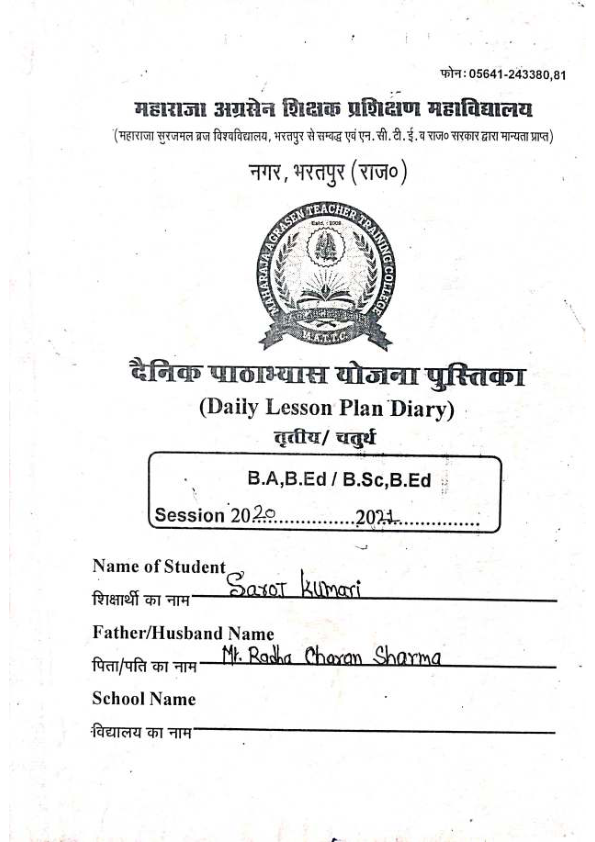 फोन: 05641-243380,81
महाराजा अग्रसेन शिक्षक प्रशिक्षण महाविद्यालय
(महाराजा सुरजमल ब्रज विश्वविद्यालय, भरतपुर से सम्बद्ध एवं एन. सी. टी. ई. व राज० सरकार द्वारा मान्यता प्राप्त)
नगर, भरतपुर (राज०)
MAHARAJA AGRASEN TEACHER TRAINING COLLEGE
Estd. : 2005
M.A.T.T.C.
दैनिक पाठाभ्यास योजना पुस्तिका
(Daily Lesson Plan Diary)
तृतीय/ चतुर्थ
B.A,B.Ed / B.Sc,B.Ed
Session 2020..................2021................
Name of Student
शिक्षार्थी का नाम Saroj Kumari
Father/Husband Name
पिता/पति का नाम Mr. Radha Charan Sharma
School Name
विद्यालय का नाम